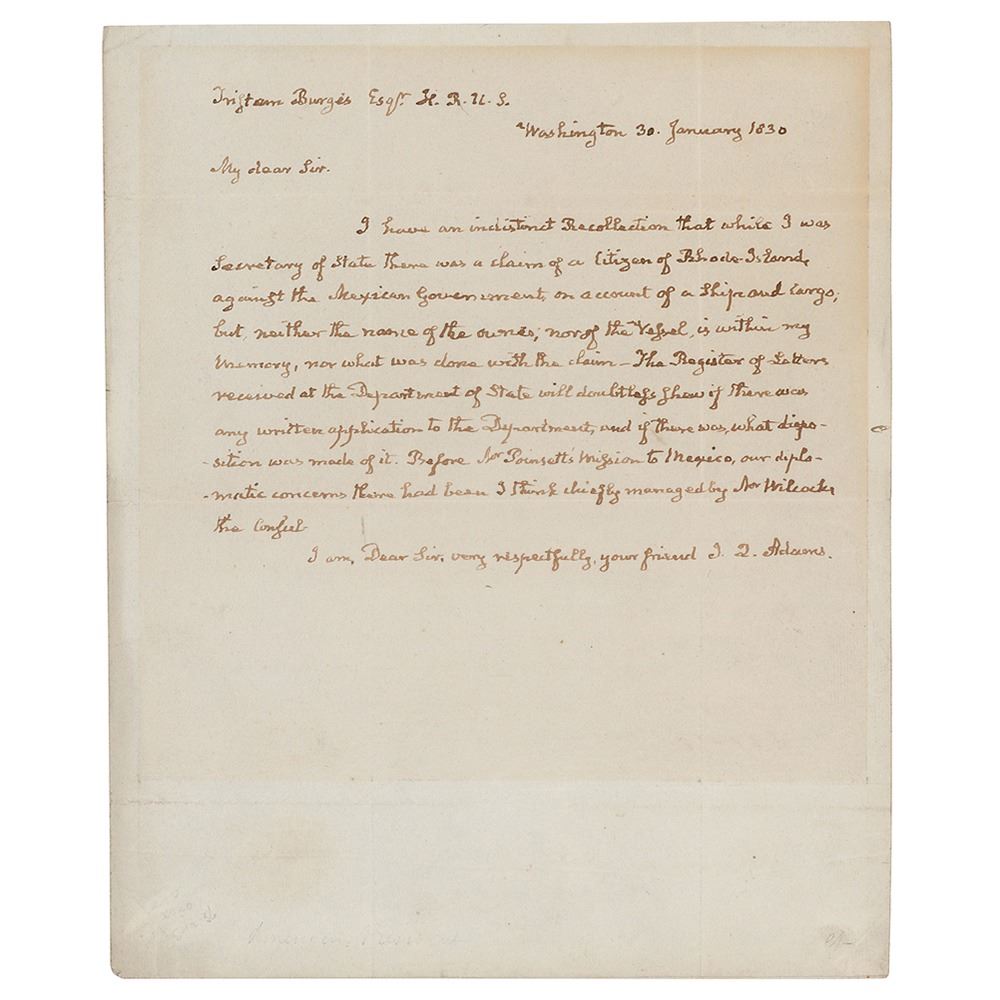 Tristam Burges Esqr. H. R. U. S.
Washington 30. January 1830
My dear Sir.
I have an indistinct Recollection that while I was
Secretary of State there was a claim of a Citizen of Rhode-Island,
against the Mexican Government, on account of a Ship and Cargo;
but, neither the name of the owner, nor of the Vessel, is within my
Memory, nor what was done with the claim — The Register of Letters
received at the Department of State will doubtless shew if there was
any written application to the Department, and if there was, what dispo-
-sition was made of it. Before Mr Poinsett's Mission to Mexico, our diplo-
-matic concerns there had been I think chiefly managed by Mr Wilcocks
the Consul
I am, Dear Sir, very respectfully, your friend J. Q. Adams.
American President